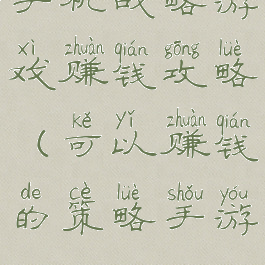 手机战略游
xì zhuàn qián gōng lüè
戏赚钱攻略
kě yǐ zhuàn qián
（可以赚钱
de cè lüè shǒu yóu
的策略手游